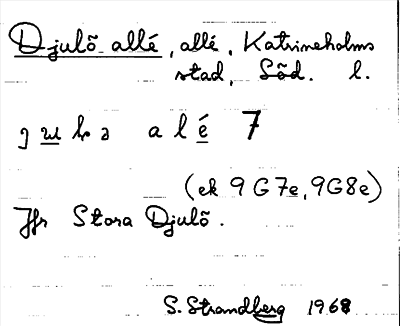 Djulö allé, allé, Katrineholms
stad, Söd. l.
alé 7
(ek 9G7e, 9G8e)
Jfr Stora Djulö.
S. Strandberg 1968